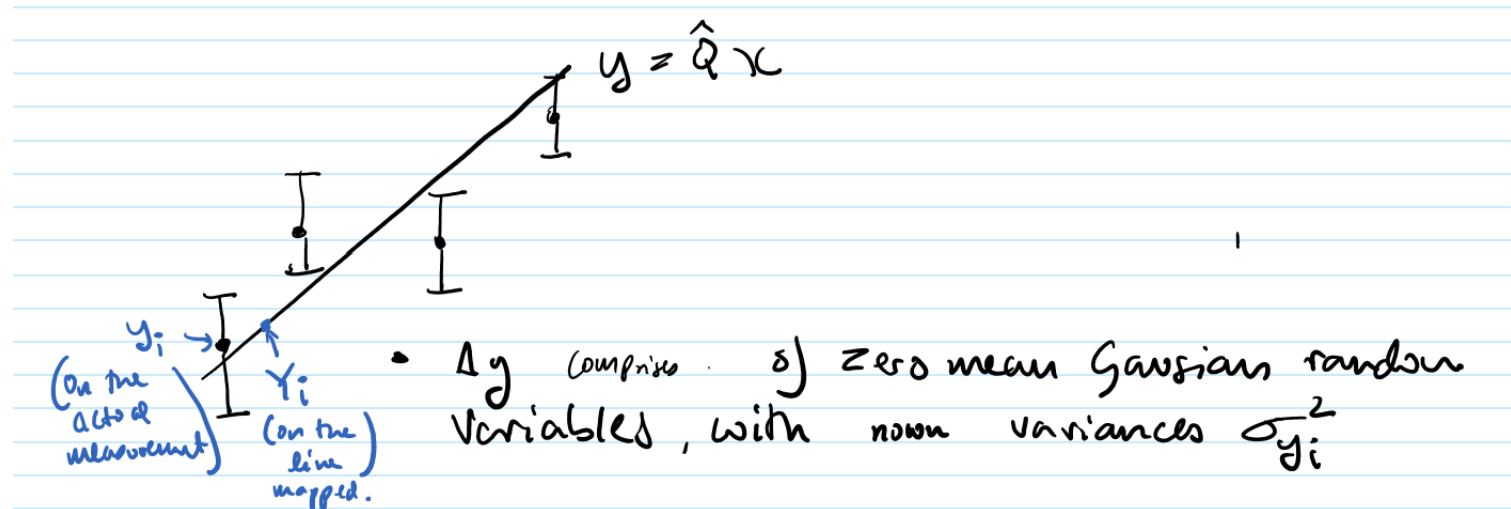 y = Q̂ x
yᵢ
(on the
actual
measurement)
Yᵢ
(on the
line
mapped.
• Δy comprises of zero mean Gausian random
variables, with nown variances σ²yᵢ